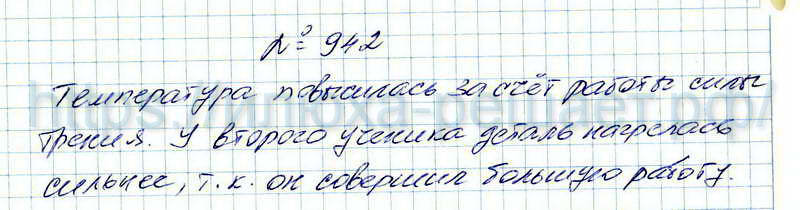 № 942
Температура повысилась за счёт работы силы
трения. У второго ученика деталь нагрелась
сильнее, т.к. он совершил большую работу.